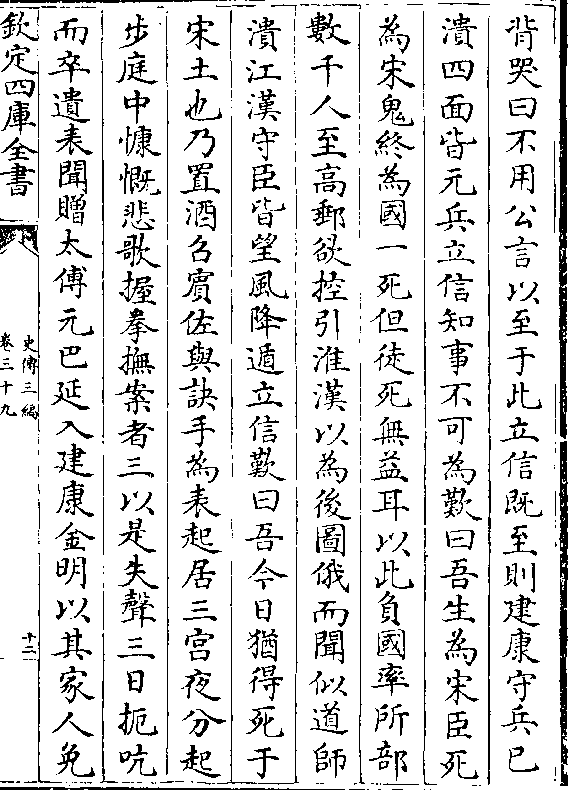 背哭曰不用公言以至于此立信既至則建康守兵已
潰四面皆元兵立信知事不可為歎曰吾生為宋臣死
為宋鬼終為國一死但徒死無益耳以此負國率所部
數千人至高郵欲控引淮漢以為後圖俄而聞似道師
潰江漢守臣皆望風降遁立信歎曰吾今日猶得死于
宋土也乃置酒召賓佐與訣手為表起居三宮夜分起
步庭中慷慨悲歌握拳撫案者三以是失聲三日扼吭
而卒遺表聞贈太傅元巴延入建康金明以其家人免
欽定四庫全書
史傳三編
卷三十九
十二